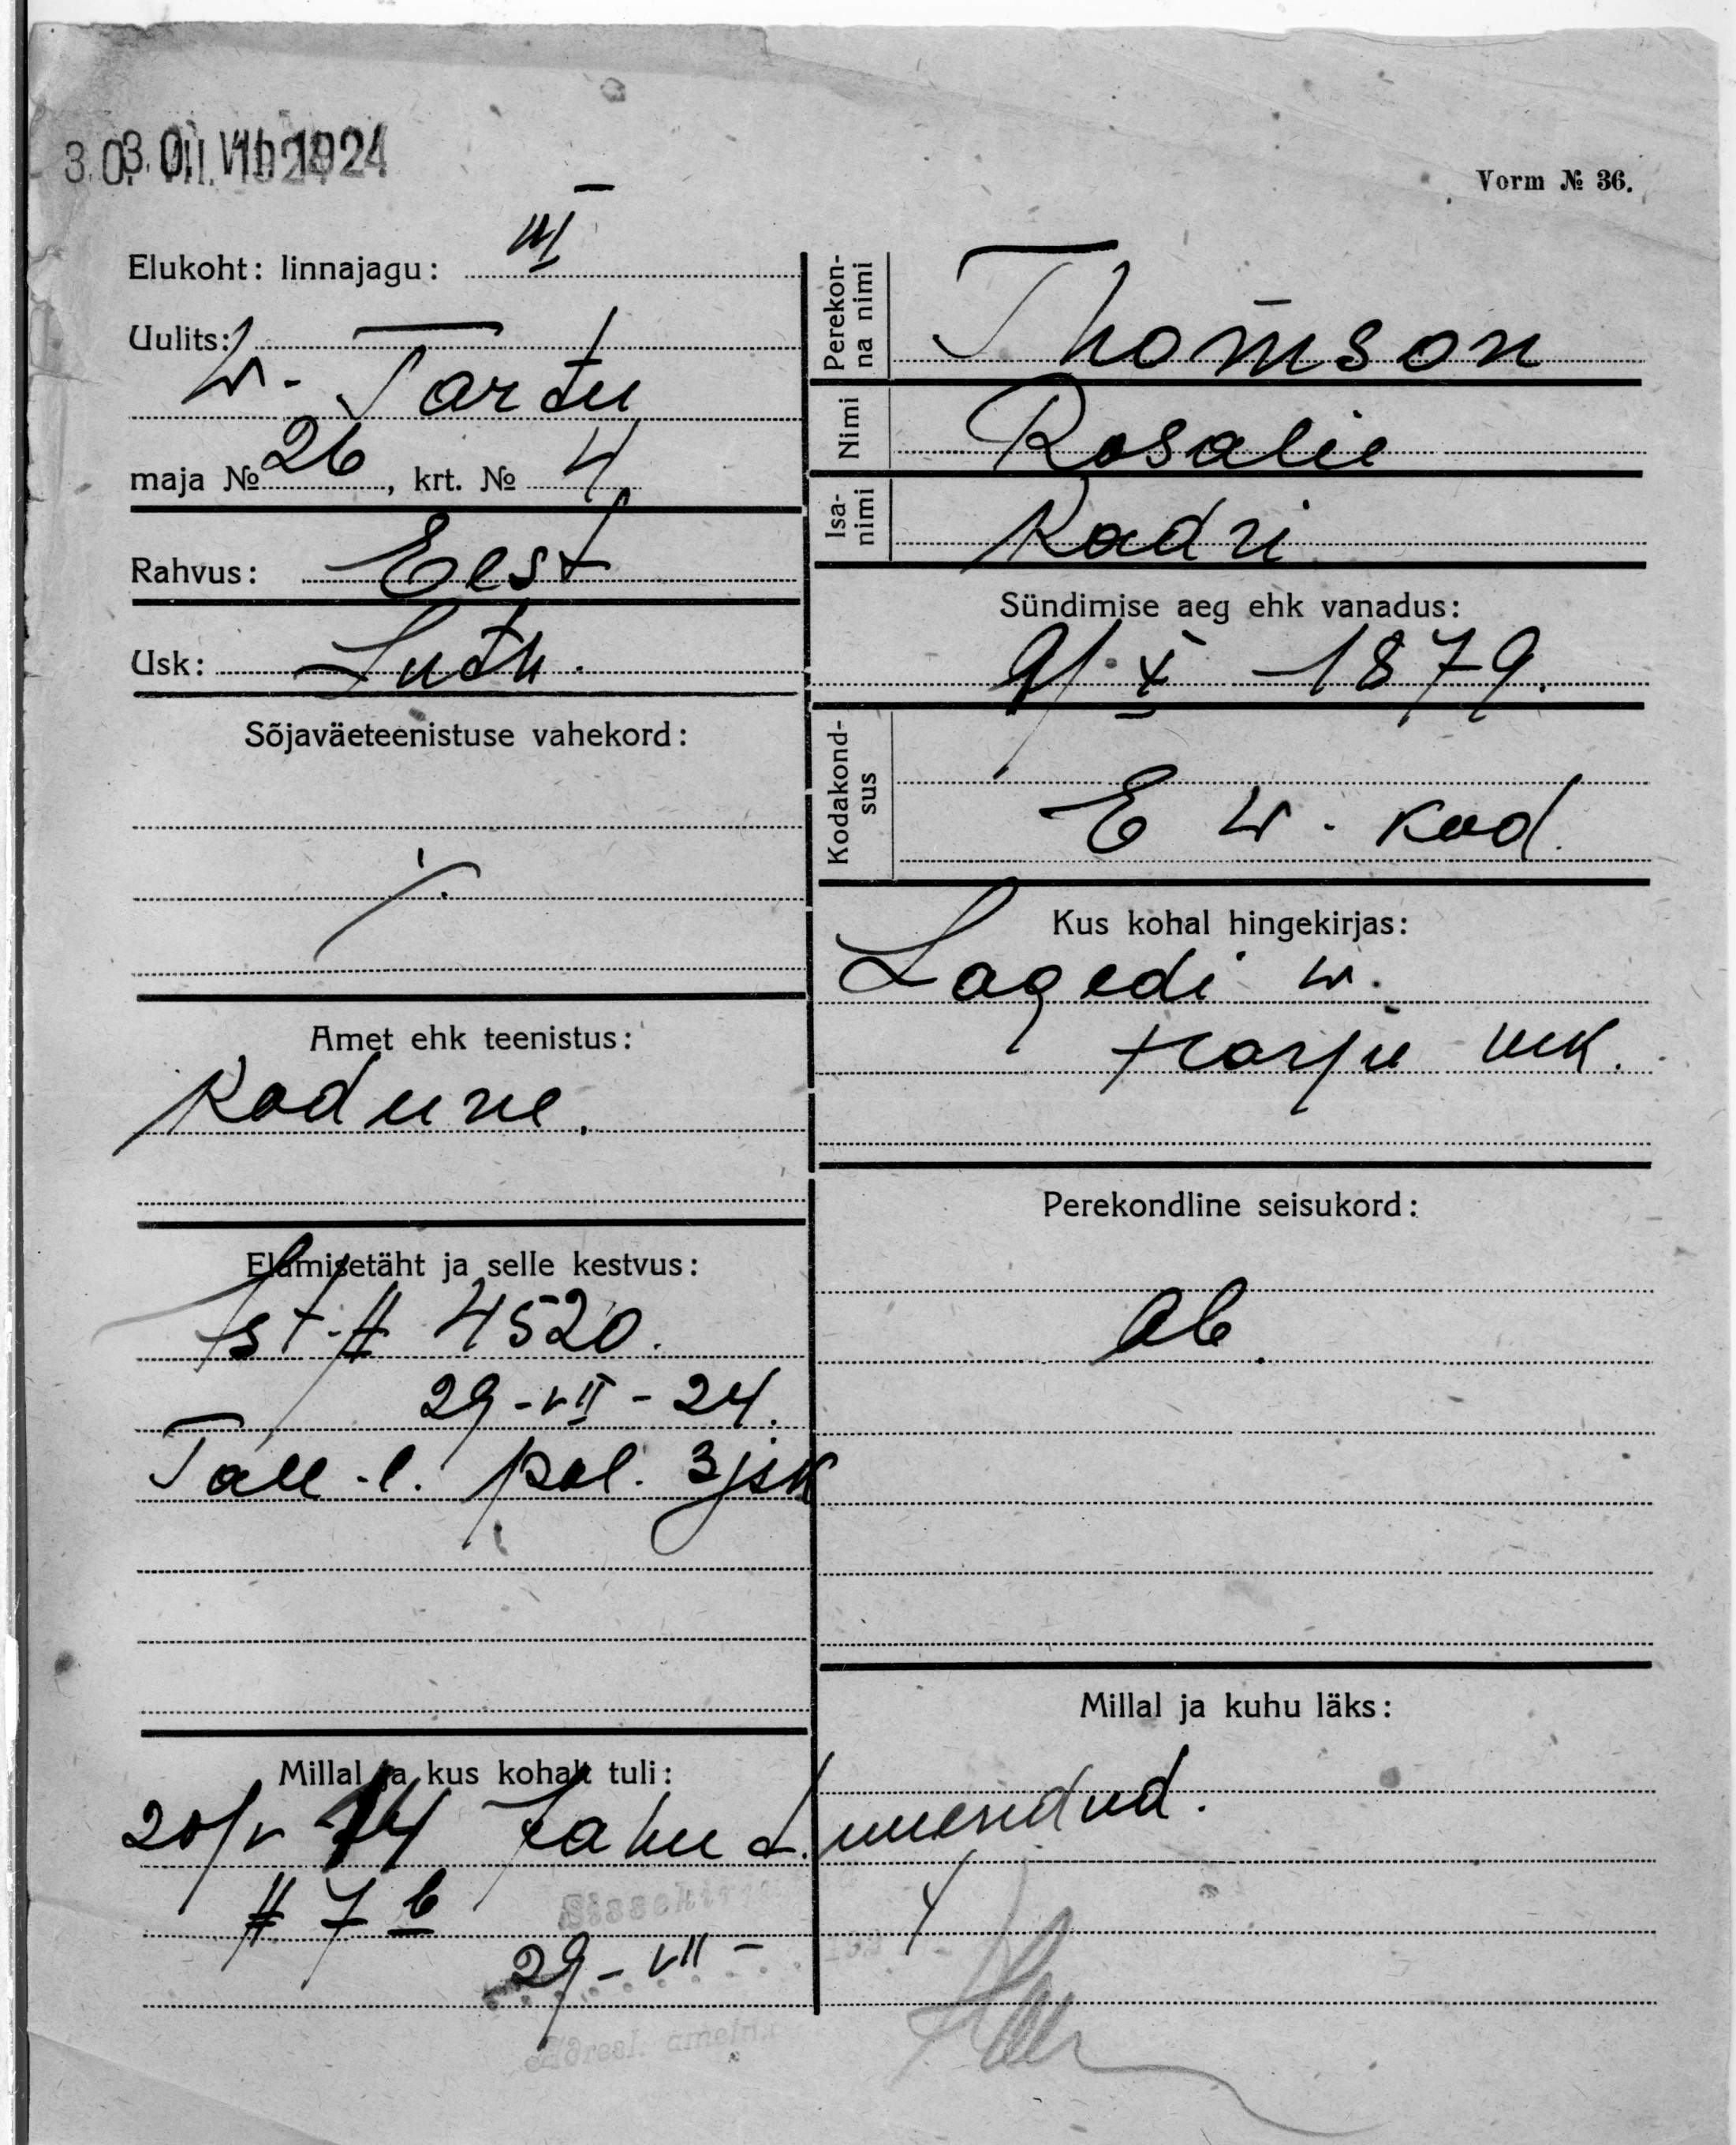 30. VII. 1924
Vorm № 36.
Elukoht: linnajagu: III
Uulits:
W. Tartu
maja № 26, krt. № 4
Rahvus: Eest
Usk: Luth.
Sõjaväeteenistuse vahekord:
Amet ehk teenistus:
Kodune.
Elamisetäht ja selle kestvus:
Ist. # 4520.
29-VII-24.
Tall. l. pol. 3 jsk
Millal ja kus kohalt tuli:
20/V 24 Jahu t.
# 7 b
29-VII-
Perekonna nimi Thomson
Nimi Rosalie
Isanimi Kadri
Sündimise aeg ehk vanadus:
9/X 1879.
Kodakondsus
E W. kod.
Kus kohal hingekirjas:
Lagedi w.
Harju mk.
Perekondline seisukord:
Ab.
Millal ja kuhu läks:
uuendud.
Sissekirjutatud
Adressl. ametn.